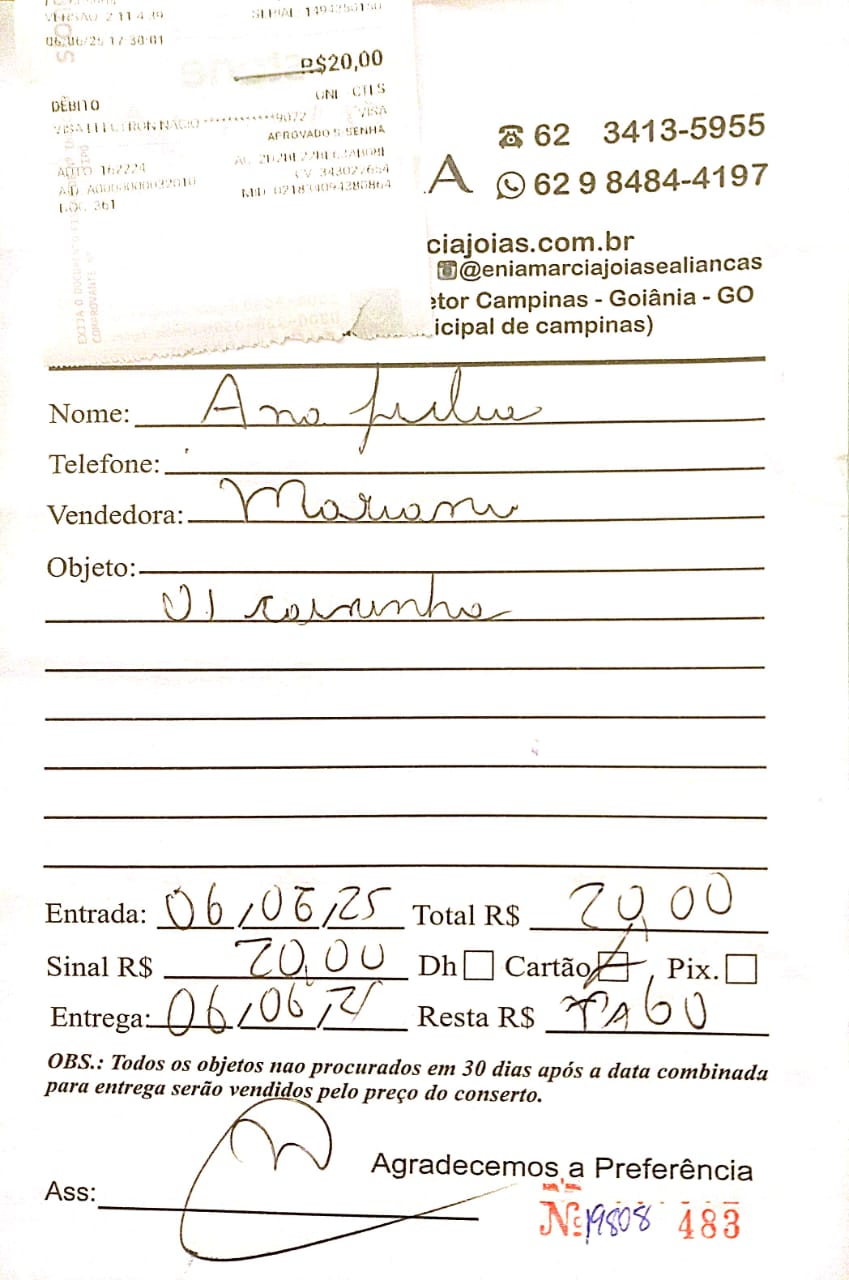 VERSAO 2 11 4 39 SERIAL 1494350150
06/06/25 17 30:01
R$20,00
DÉBITO
VISA ELECTRON NACIO ************9072 VISA
APROVADO S SENHA
AUTO 162224
CV 343027654
AID A0000000032010
DOC 361
EXIJA O DOCUMENTO
COMPROVANTE
62 3413-5955
A 62 9 8484-4197
ciajoias.com.br
@eniamarciajoiasealiancas
etor Campinas - Goiânia - GO
icipal de campinas)
Nome: Ana
Telefone:
Vendedora: Mariana
Objeto:
01
Entrada: 06/06/25 Total R$ 20,00
Sinal R$ 20,00 Dh Cartão Pix.
Entrega: 06/06/25 Resta R$ PAGO
OBS.: Todos os objetos nao procurados em 30 dias após a data combinada
para entrega serão vendidos pelo preço do conserto.
Agradecemos a Preferência
Ass:
Nº 19808 483